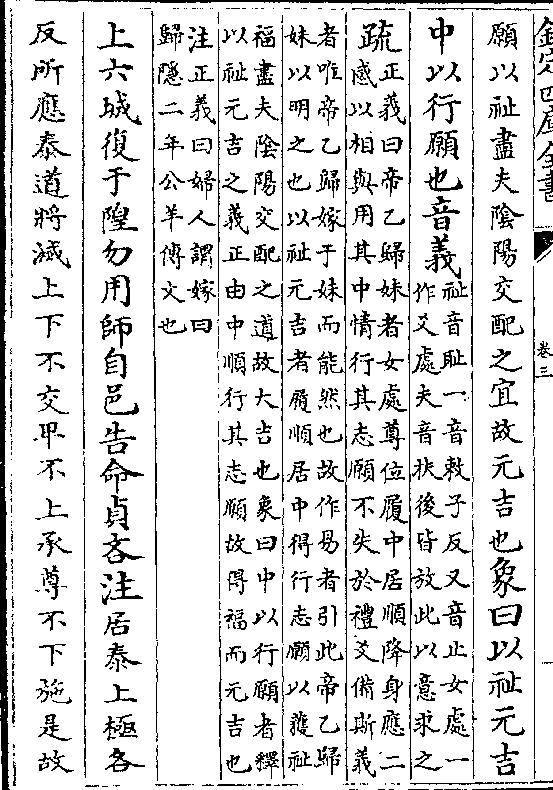 欽定四庫全書
卷三
願以祉盡夫陰陽交配之宜故元吉也象曰以祉元吉
中以行願也音義
祉音恥一音敕子反又音止女處一
作爻處夫音扶後皆放此以意求之
疏
正義曰帝乙歸妹者女處尊位履中居順降身應二
感以相與用其中情行其志願不失於禮爻備斯義
者唯帝乙歸嫁于妹而能然也故作易者引此帝乙歸
妹以明之也以祉元吉者履順居中得行志願以獲祉
福盡夫陰陽交配之道故大吉也象曰中以行願者釋
以祉元吉之義正由中順行其志願故得福而元吉也
注正義曰婦人謂嫁曰
歸隱二年公羊傳文也
上六城復于隍勿用師自邑告命貞吝注居泰上極各
反所應泰道將滅上下不交卑不上承尊不下施是故